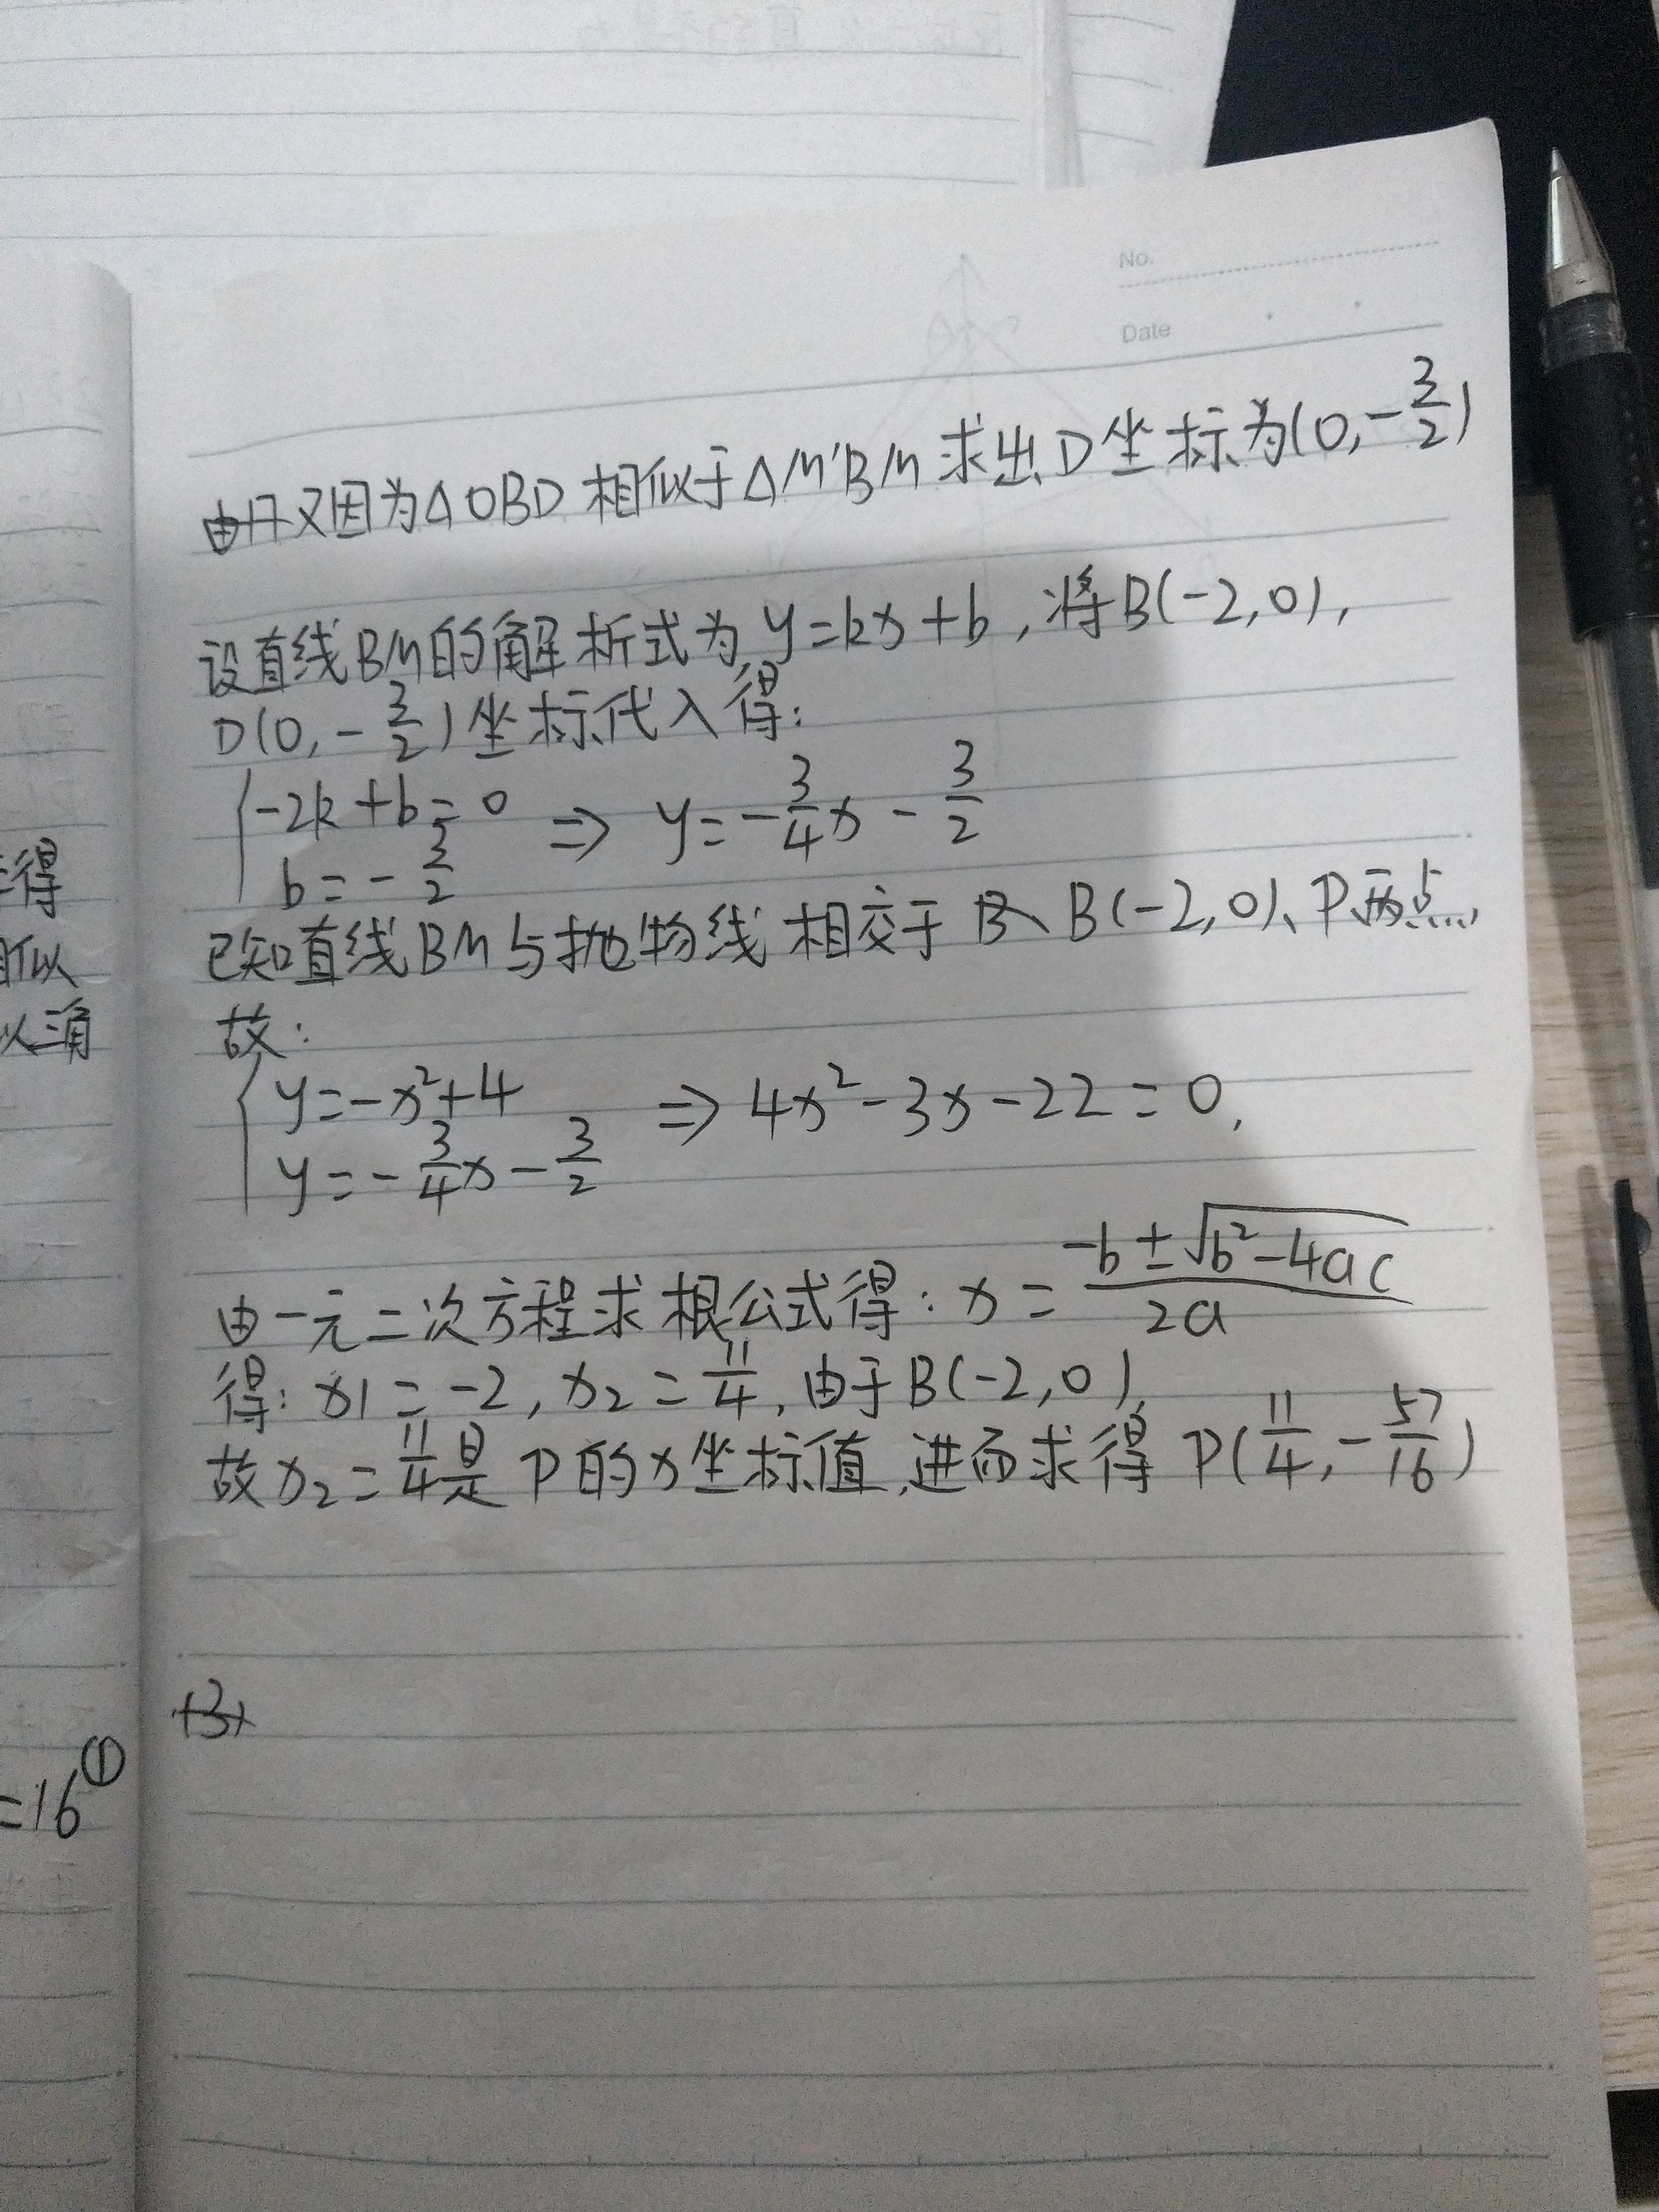 No.
Date
又因为△OBD 相似于△M'BM 求出D坐标为(0,-3/2)
设直线BM的解析式为y=kx+b,将B(-2,0),
D(0,-3/2)坐标代入得:
{-2k+b=0
b=-3/2 ⇒ y=-3/4x-3/2
已知直线BM与抛物线相交于B(-2,0)、P两点,
故:
{y=-x²+4
y=-3/4x-3/2 ⇒ 4x²-3x-22=0,
由一元二次方程求根公式得:x=(-b±√(b²-4ac))/(2a)
得:x1=-2,x2=11/4,由于B(-2,0),
故x2=11/4是P的x坐标值,进而求得P(11/4,-57/16)
得
相似
以三角
=16①